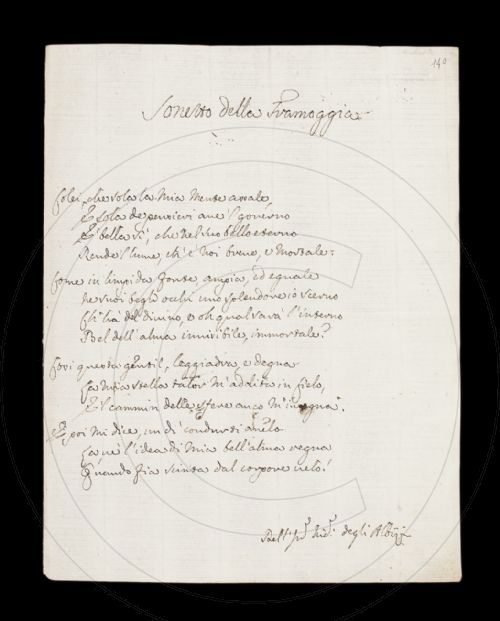 140
Sonetto della Tramoggia
Colei, che sola la mia mente assale
E sola de pensieri ave 'l governo
E' bella sì, che nel suo bello eterno
Rende 'l lume, ch' è noi breve, e mortale:
Come in limpida fonte, ampia, ed eguale
Ne suoi begli occhi uno splendore io scerno
Ch' ha del divino, e oh qual sarà l'interno
Bel dell'alma invisibile, immortale?
Così questa gentil, leggiadra, e degna
La mia stella talor m'addita in Cielo,
E 'l cammin delle sfere anco m'insegna.
E poi mi dice, un dì condursi anelo
La ve l'idea di mia bell'alma regna
Quando fia scinta dal corporeo velo.
degli Albizj